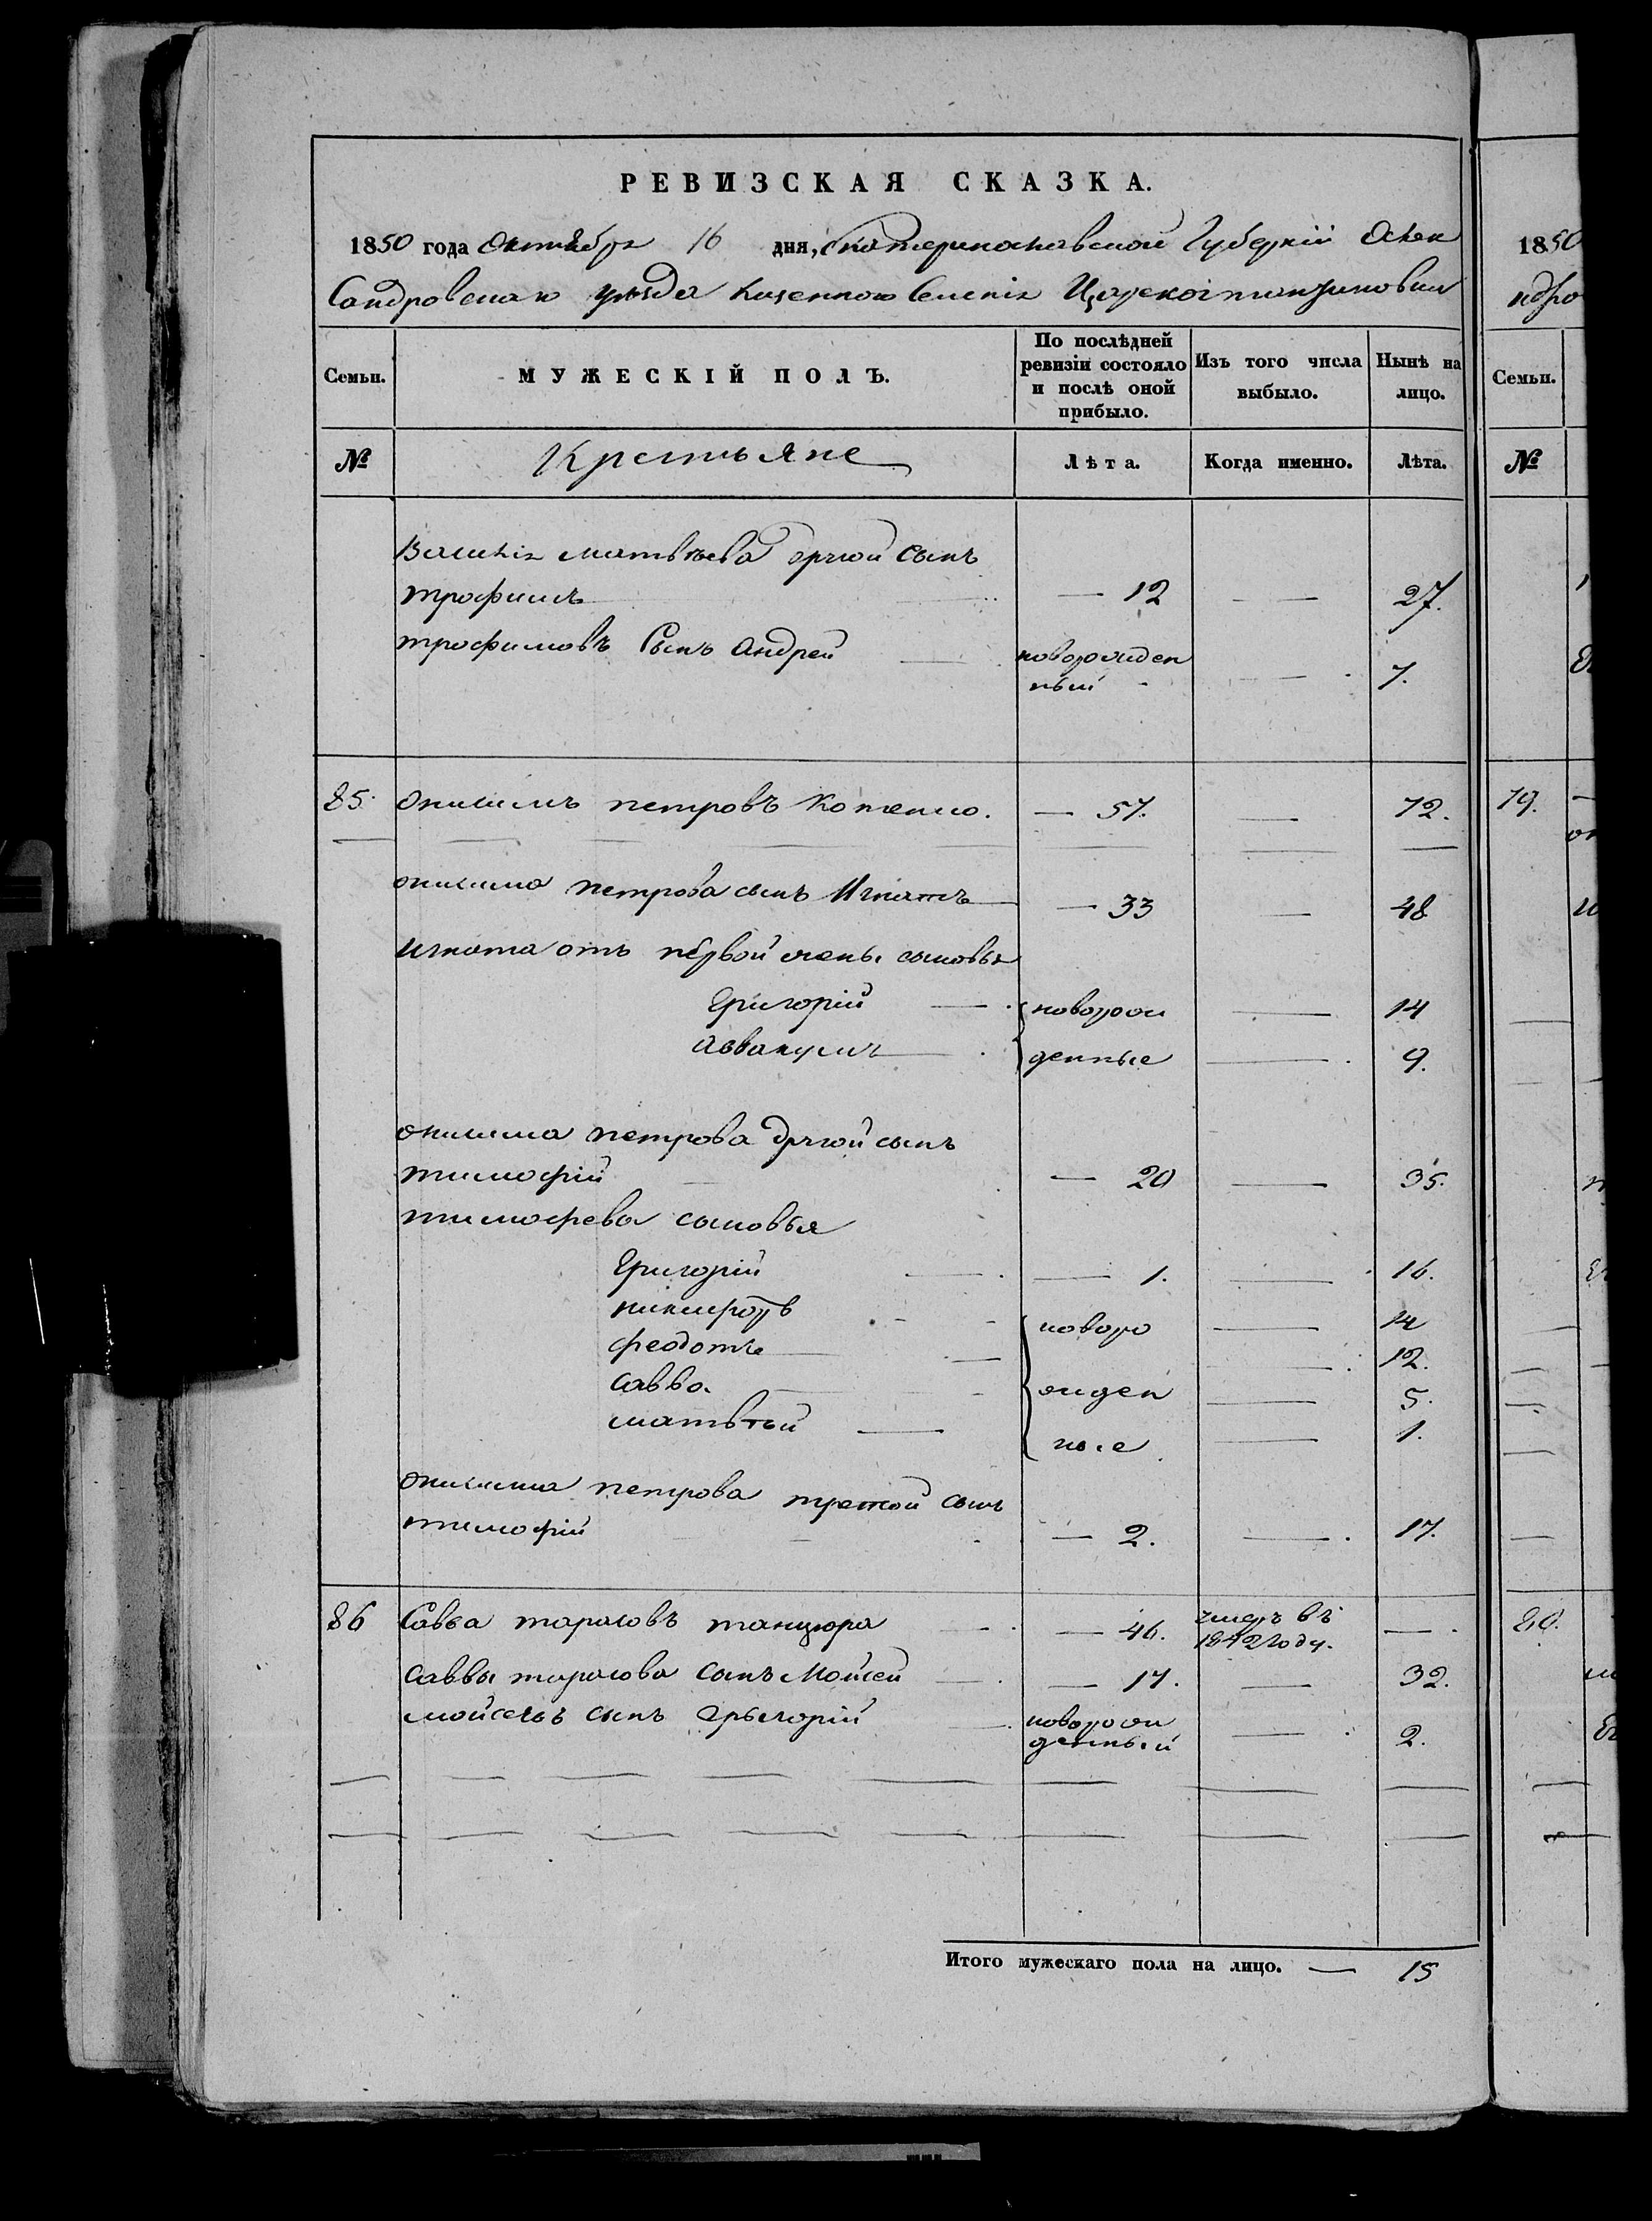 РЕВИЗСКАЯ СКАЗКА.
1850 года Октября 16 дня, Екатеринославской Губернии Алек
сандровскаго уезда Казенного Селения Цареконстантиновки
Семьи. МУЖЕСКІЙ ПОЛЪ. По послѣдней ревизіи состояло и послѣ оной прибыло. Изъ того числа выбыло. Нынѣ на лицо.
№ Крестьяне Лѣта. Когда именно. Лѣта.
матвѣева другой сынъ
трофимъ — 12 — 27.
трофимовъ Сынъ андрей новорожден
ный - — 7.
85. Онисимъ петровъ Котенко. — 57. — 72.
онисима петрова сынъ Игнатъ — 33 — 48
игната отъ первой жены сыновья
Григорій — новорож — 14
аввакумъ — денные — 9.
онисима петрова другой сынъ
тимофій — 20 — 35.
тимофева сыновья
Григорій — 1. — 16.
никифоръ новоро — 14
феодотъ — 12.
савва. жден — 5.
матвѣй — ные — 1.
онисима петрова третой сынъ
тимофій — 2. — 17.
86 Савва тарасовъ танцюра — 46. умеръ въ
1842 году. —
саввы тарасова сынъ Мойсей — 17. — 32.
мойсеевъ сынъ грыгорій новорож
денный — 2.
Итого мужескаго пола на лицо. — 15
1850
ндро
Семьи.
№
79.
80.